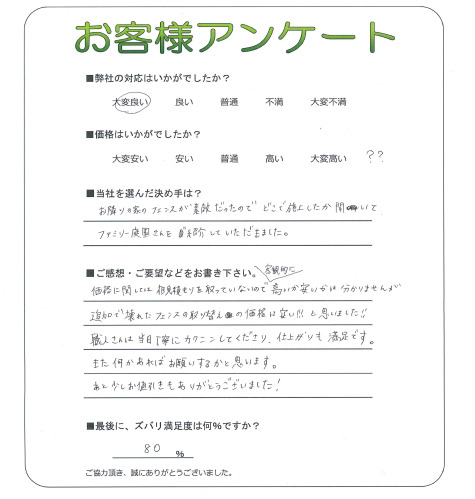 お客様アンケート
■弊社の対応はいかがでしたか？
大変良い 良い 普通 不満 大変不満
■価格はいかがでしたか？
大変安い 安い 普通 高い 大変高い ？？
■当社を選んだ決め手は？
お隣りの家のフェンスが素敵だったので どこで施工したか聞いて
ファミリー庭園さんを ご紹介していただきました。
■ご感想・ご要望などをお書き下さい。
客観的に
価格に関しては相見積もりを取っていないので高いか安いかは分かりませんが
追加で壊れたフェンスの取り替えの価格は安い!!! と思いました!!
職人さんは毎日丁寧に してくださり、仕上がりも満足です。
また何かあればお願いするかと思います。
あと少しお値引きもありがとうございました!
■最後に、ズバリ満足度は何%ですか？
80 %
ご協力頂き、誠にありがとうございました。